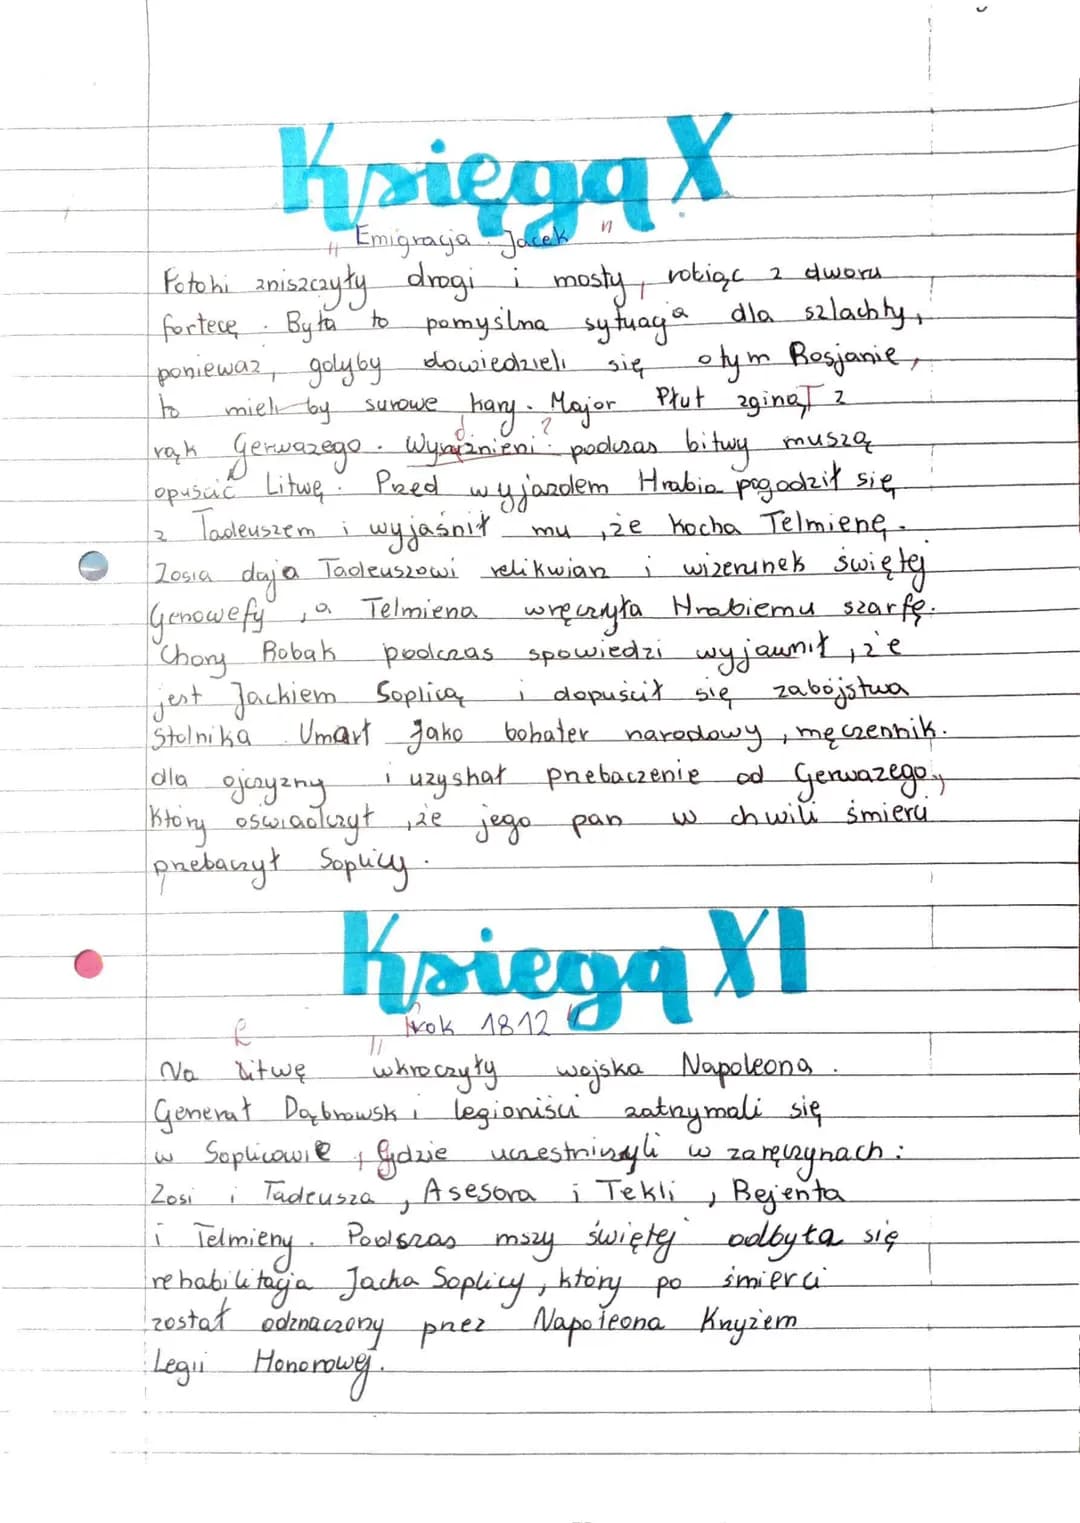 Księga X
"Emigracja. Jacek"
Potoki zniszczyły drogi i mosty, robiąc z dworu
fortecę. Była to pomyślna sytuacja dla szlachty,
ponieważ, gdyby dowiedzieli się o tym Rosjanie,
to mieli by surowe kary. Major Płut zginął z
rąk Gerwazego. Wyróżnieni podczas bitwy muszą
opuścić Litwę. Przed wyjazdem Hrabia pogodził się
z Tadeuszem i wyjaśnił mu, że kocha Telmienę.
Zosia daja Tadeuszowi relikwiarz i wizerunek świętej
Genowefy, a Telmiena wręczyła Hrabiemu szarfę.
Chory Robak podczas spowiedzi wyjawnił, że
jest Jackiem Soplicą i dopuścił się zabójstwa
Stolnika. Umarł jako bohater narodowy, męczennik
dla ojczyzny i uzyskał przebaczenie od Gerwazego,
który oświadczył, że jego pan w chwili śmierci
przebaczył Soplicy.
Księga XI
"Rok 1812"
Na Litwę wkroczyły wojska Napoleona.
Generał Dąbrowski i legioniści zatrzymali się
w Soplicowie, gdzie uczestniczyli w zaręczynach:
Zosi i Tadeusza, Asesora i Tekli, Rejenta
i Telmieny. Podczas mszy świętej odbyła się
rehabilitacja Jacka Soplicy, który po śmierci
został odznaczony przez Napoleona Krzyżem
Legii Honorowej.